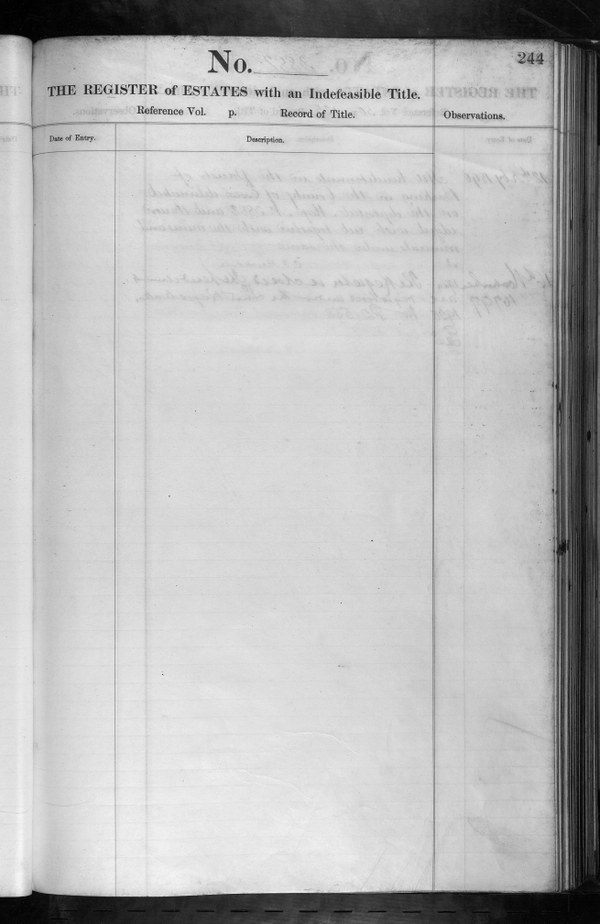 244
No.
THE REGISTER of ESTATES with an Indefeasible Title.
Reference Vol. p. Record of Title. Observations.
Date of Entry. Description.